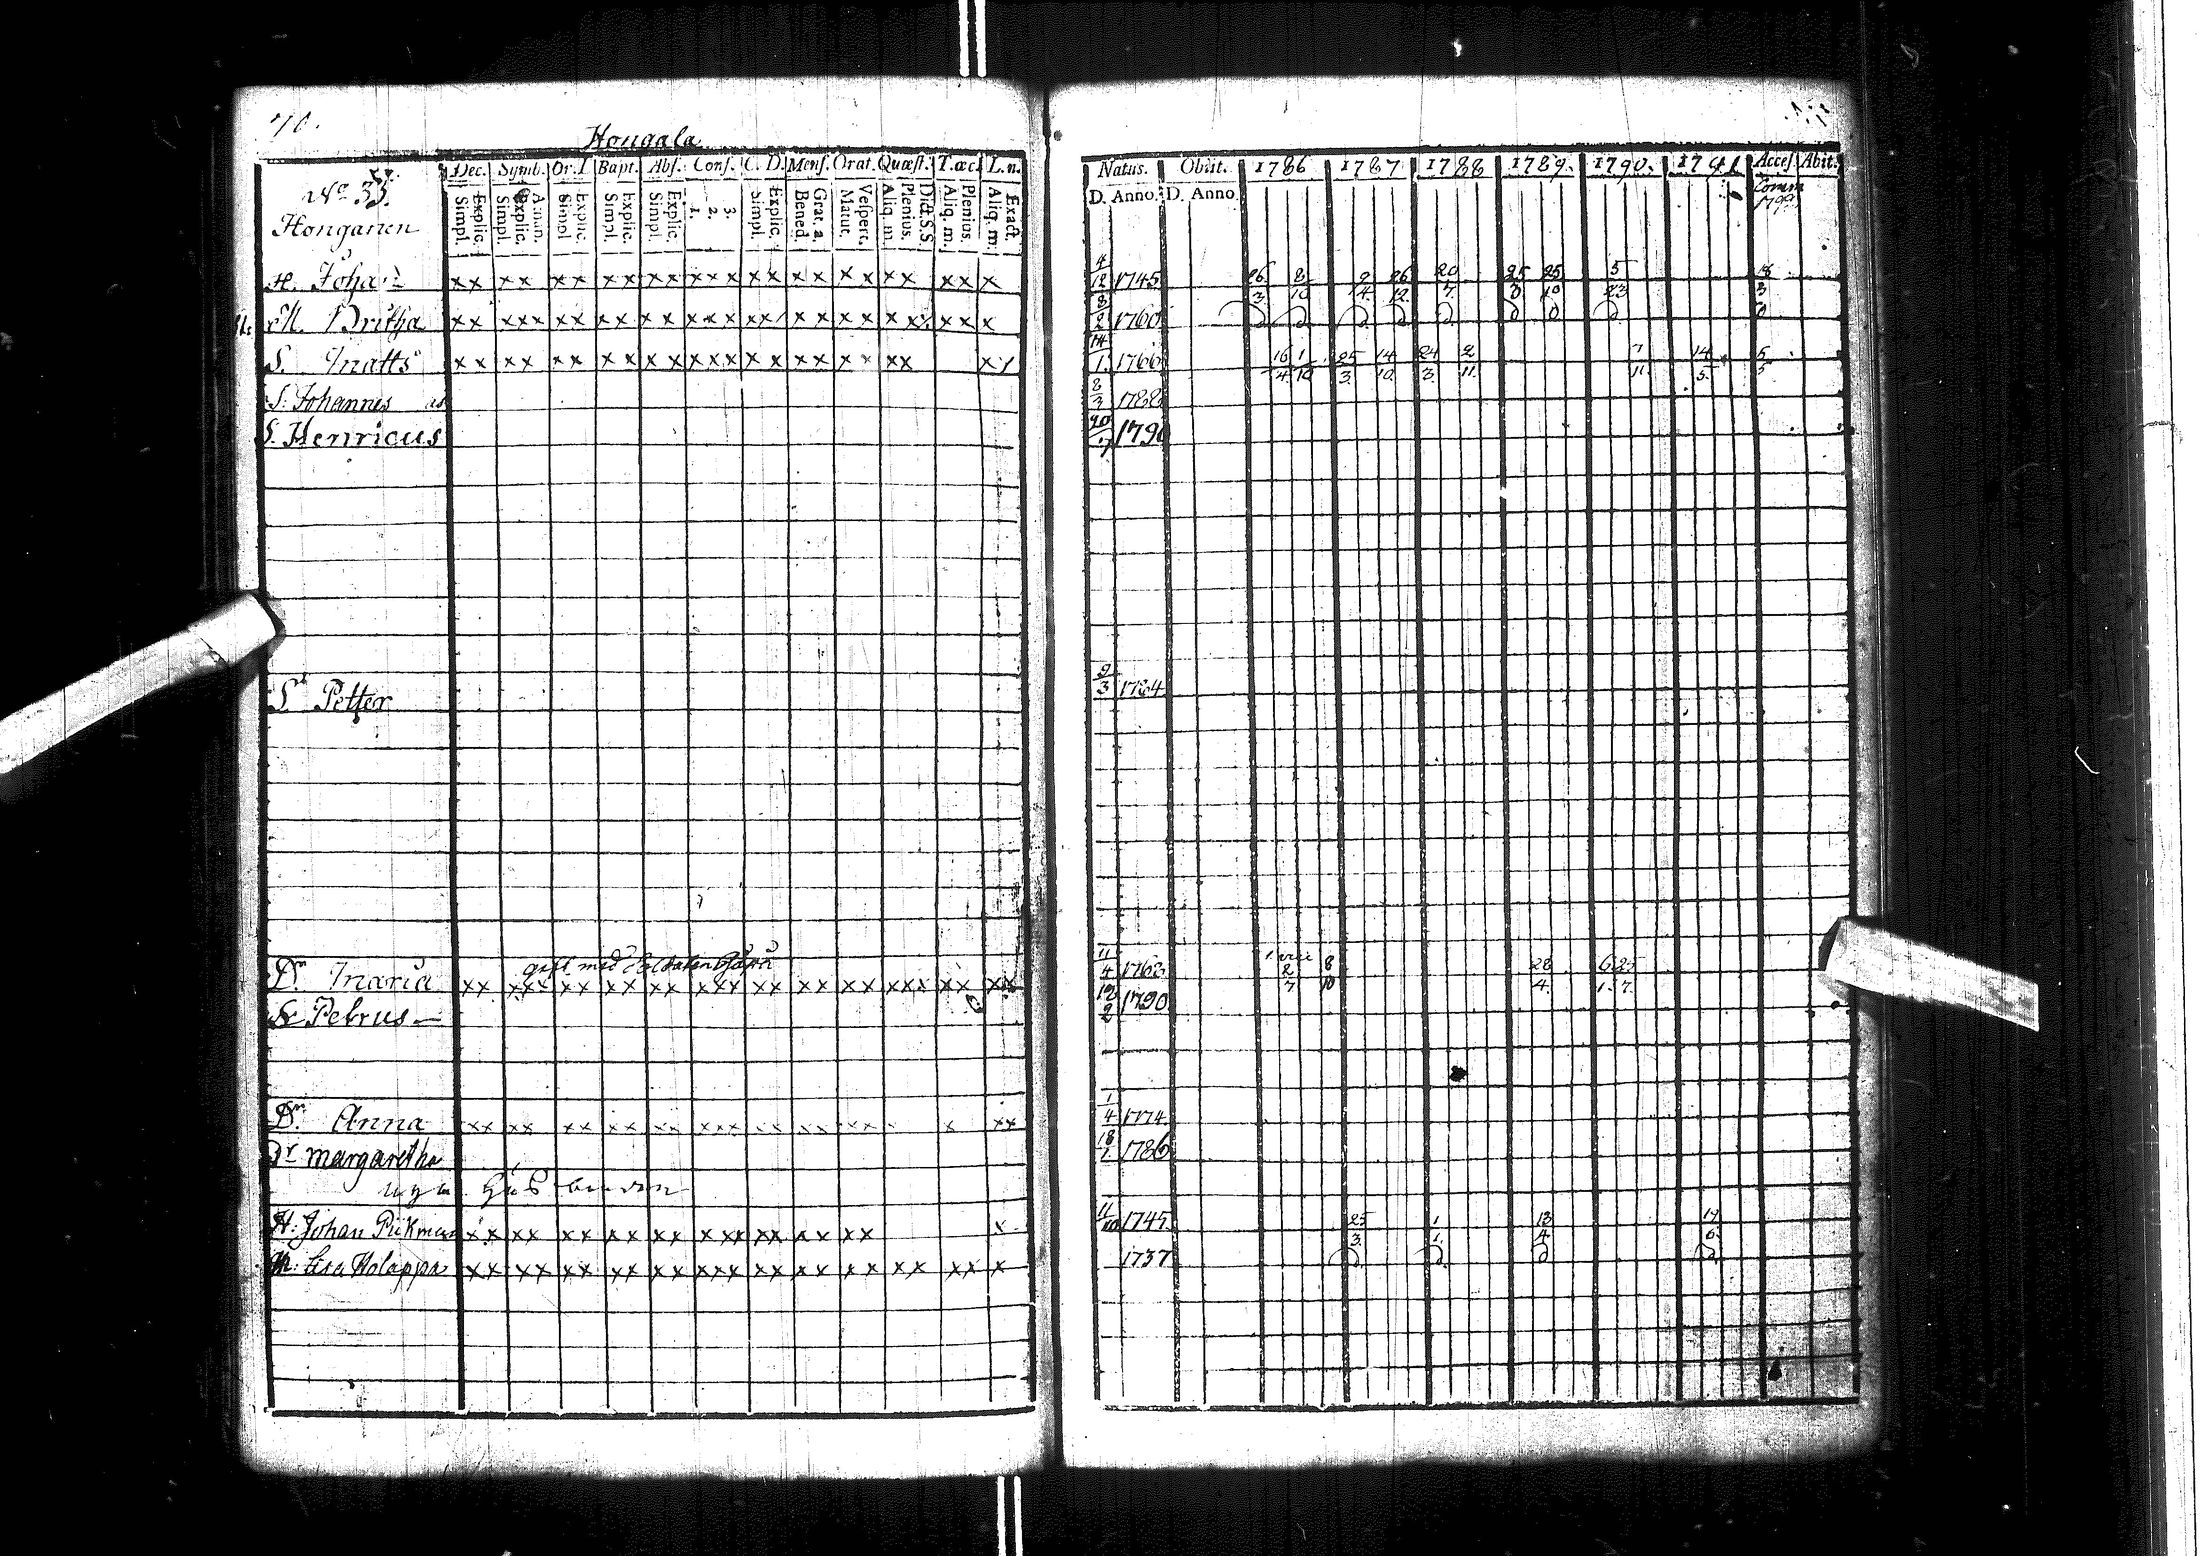 70.
Hongala
Dec. Symb. Or. D Bapt. Abs. Conf. C. D. Mens. Orat. Quæst. T. œc. L. n.
Explic. Simpl. Athan. Explic. Simpl. Explic. Simpl. Explic. Simpl. Explic. Simpl. 3. 2. 1. Explic. Simpl. Grat. a. Bened. Vespert. Matut. Dict. S.S. Plenius. Aliq. m. Plenius. Aliq. m. Exact. Aliq. m.
No 33.
Honganen
H. Joha
xx xx xx xx xx xxx xx xx xx xx xx x
M. Britha
xx xxx xx xx xx xxx xx xx xx xx xx x
S. Matts
xx xx xx xx xx xxx xx xx xx xx x
S. Johannes
S. Henricus
Sn Petter
gift med Soldaten
Dr. Maria xx xxx xx xx xx xxx xx xx xx xxx xx xx
S Petrus
Dr. Anna xx xx xx xx xx xxx xx xx xx x xx
Dr margaretha
H. Johan Pickman xx xx xx xx xx xxx xx xx xx x
H. Lisa Kolappa xx xx xx xx xx xxx xx xx xx xx xx x
Natus. Obiit. 1786 1787 1788 1789. 1790. 1791 Acces. Abit.
D. Anno. D. Anno. Comm
4/12 1745. 26/3. 8/10 9/14. 26/12. 20/7. 25/3 25/10 5/23 18/3
8/2 1760
14/1. 1766 16/4 1/10 25/3. 14/10. 24/3. 2/11. 7/11. 14/5. 5/5
8/3 1788
20/7 1790
9/3 1784
11/4 1763 2/7 8/10 28/4. 6/1. 25/7.
12/2 1790.
1/4 1774
18/1. 1786
11/10 1745. 25/3. 1/1. 13/4. 14/6.
1737